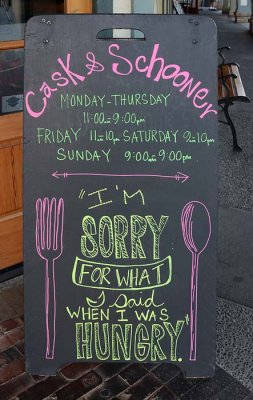 Cask & Schooner
MONDAY-THURSDAY
11:00am-9:00pm
FRIDAY 11am-10pm SATURDAY 9am-10pm
SUNDAY 9:00am-9:00pm
"I'M
SORRY
FOR WHAT
I Said
WHEN I WAS
HUNGRY".